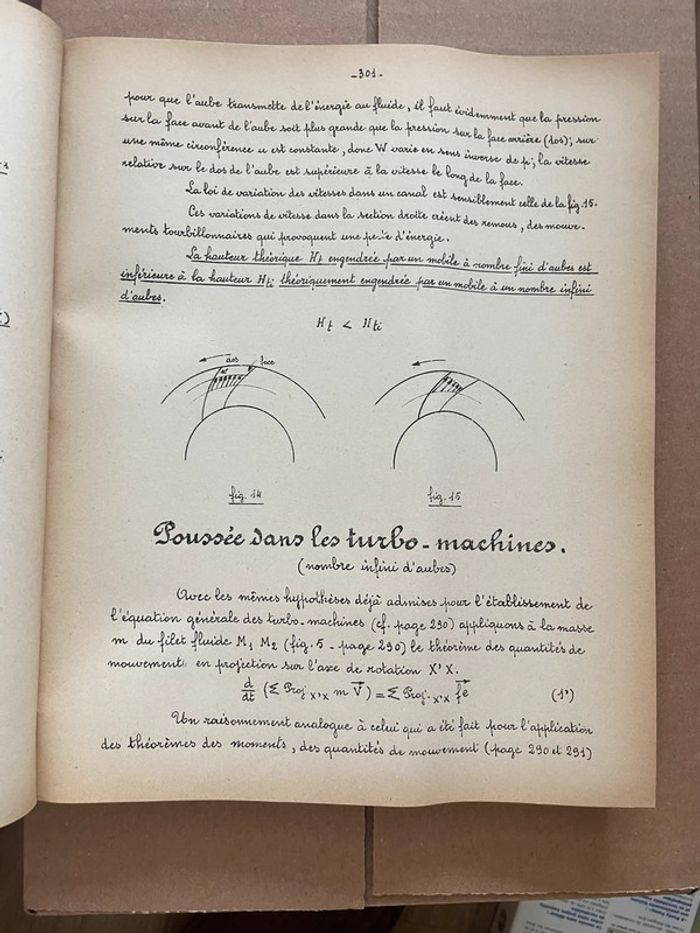 -301-
pour que l'aube transmette de l'énergie au fluide, il faut évidemment que la pression
sur la face avant de l'aube soit plus grande que la pression sur la face arrière (dos); sur
une même circonférence u est constante, donc W varie en sens inverse de p; la vitesse
relative sur le dos de l'aube est supérieure à la vitesse le long de la face.
La loi de variation des vitesses dans un canal est sensiblement celle de la fig. 15.
Ces variations de vitesse dans la section droite créent des remous, des mouve-
ments tourbillonnaires qui provoquent une perte d'énergie.
La hauteur théorique Ht engendrée par un mobile à nombre fini d'aubes est
inférieure à la hauteur Hti théoriquement engendrée par un mobile à un nombre infini
d'aubes.
Ht < Hti
dos face
fig. 14 fig. 15
Poussée dans les turbo-machines.
(nombre infini d'aubes)
Avec les mêmes hypothèses déjà admises pour l'établissement de
l'équation générale des turbo-machines (cf. page 290) appliquons à la masse
m du filet fluide M1 M2 (fig. 5 - page 290) le théorème des quantités de
mouvement en projection sur l'axe de rotation X'X.
d/dt (Σ Proj X'X m V⃗) = Σ Proj. X'X f⃗e (1')
Un raisonnement analogue à celui qui a été fait pour l'application
des théorèmes des moments, des quantités de mouvement (page 290 et 291)